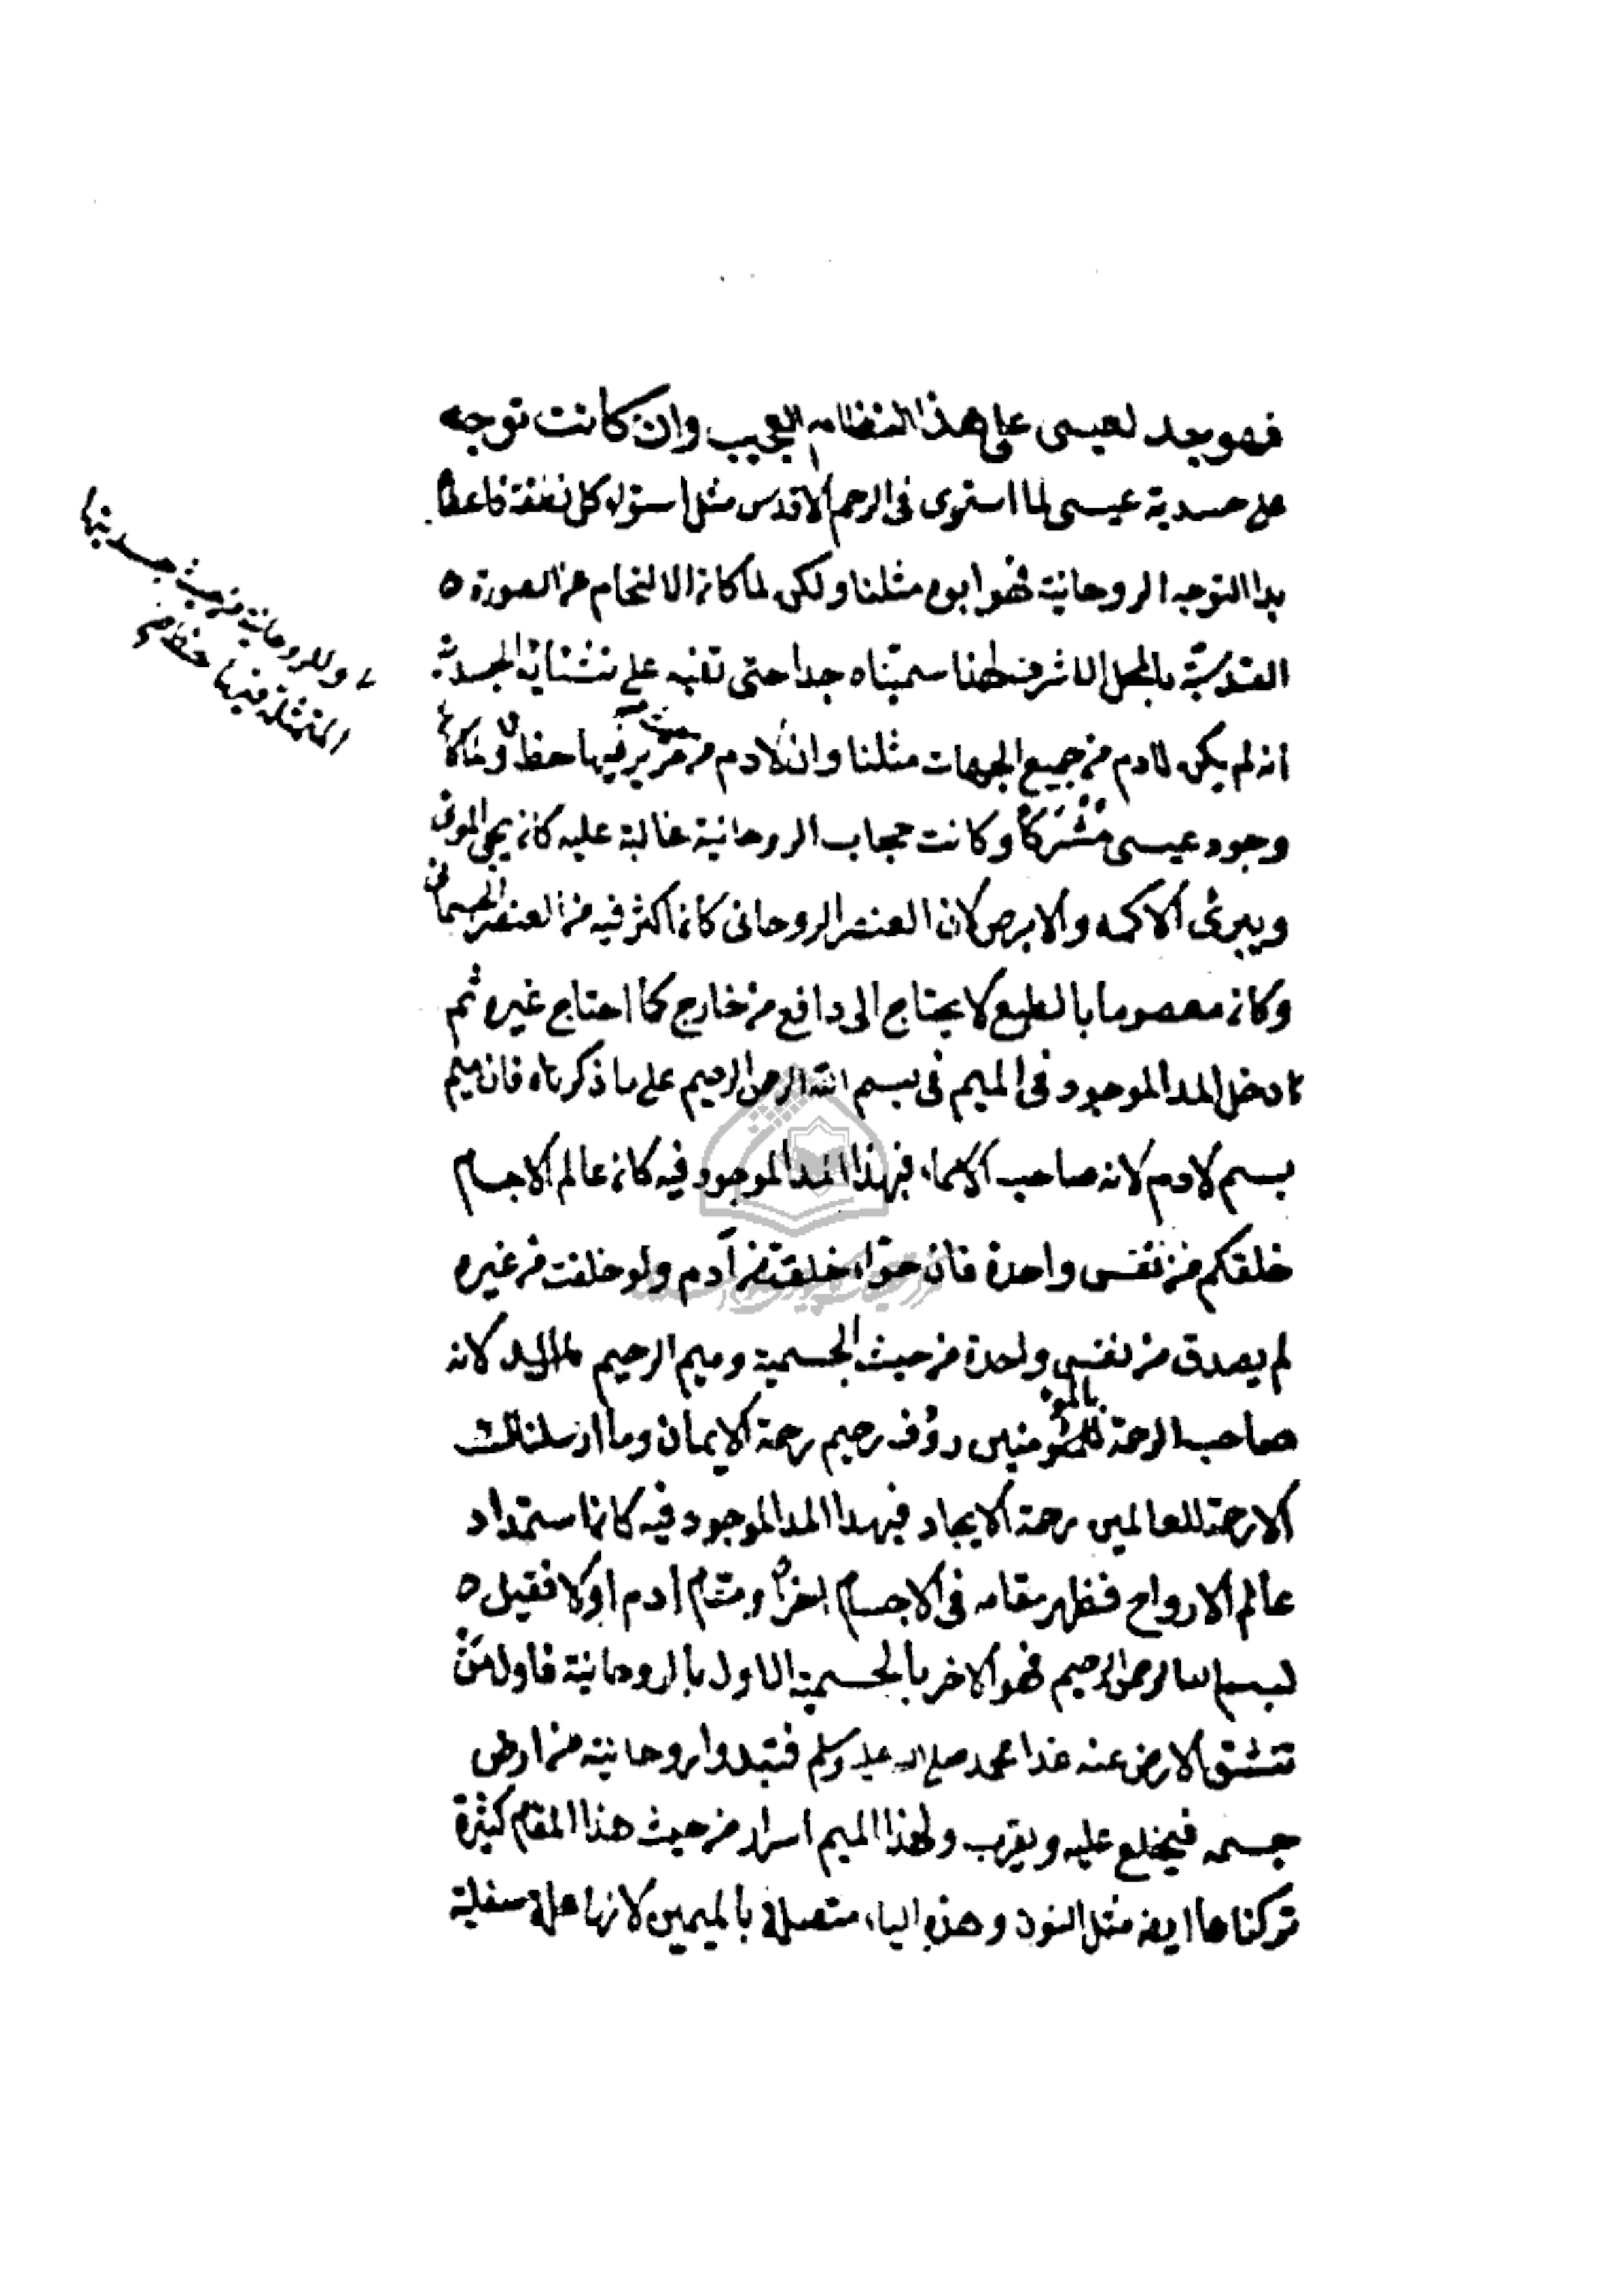 فهو جد لعيسى على هذا النظام العجيب وان كانت توجه
على جسدية عيسى لما استوى فى الرحم الاقدس مثل استوا كل نفخة فاعطا
بدا التوجه الروحانية فهو ابوه مثلنا ولكن لما كان الالتحام من الصورة ه
القدسية بالمحل الاشرف لهذا سميناه جدا حتى تنبه على نشاته الجسدية
انه لم يكن لادم من جميع الجهات مثلنا وان لادم من مريم فيها حظا ولما كان
وجود عيسى مشتركا وكانت حجاب الروحانية غالبة عليه كان يحيى الموتى
ويبرئ الاكمه والابرص لان العنصر الروحانى كان اكثر فيه من العنصر الجسمانى
وكان معصوما بالطبع لا يحتاج الى دافع من خارج كما احتاج غيره ثم
دخل المد الموجود فى الميم فى بسم الله الرحمن الرحيم على ما ذكرناه فان ميم
بسم لادم لانه صاحب الاسما، فبهذا المد الموجود فيه كان عالم الاجسام
خلقكم من نفس واحدة فان حوا، خلقت من آدم ولو خلقت من غيره
لم يصدق من نفس واحدة من حيث الجسمية وميم الرحيم لانه
صاحب الرحمة بالمومنين رؤف رحيم رحمة الايمان وما ارسلناك
الا رحمة للعالمين رحمة الايجاد فبهذا المد الموجود فيه كان استمداد
عالم الارواح فظهر مقامه فى الاجسام اخرا ومقام ادم اولا فقيل ه
لبسم الله الرحمن الرحيم فهو الاخر بالجسمية الاول بالروحانية فاول من
تنشق الارض عنه غدا محمد صلى الله عليه وسلم فتبدوا روحانيته من ارض
جسمه فيخلع عليه ويقرب ولهذا الميم اسرار من حيث هذا المقام كثيرة
تركناها ايضا مثل النون وهذه اليا، متصلة بالميمين لانها علة سفلية
وللروحانية من حيث جسديتها